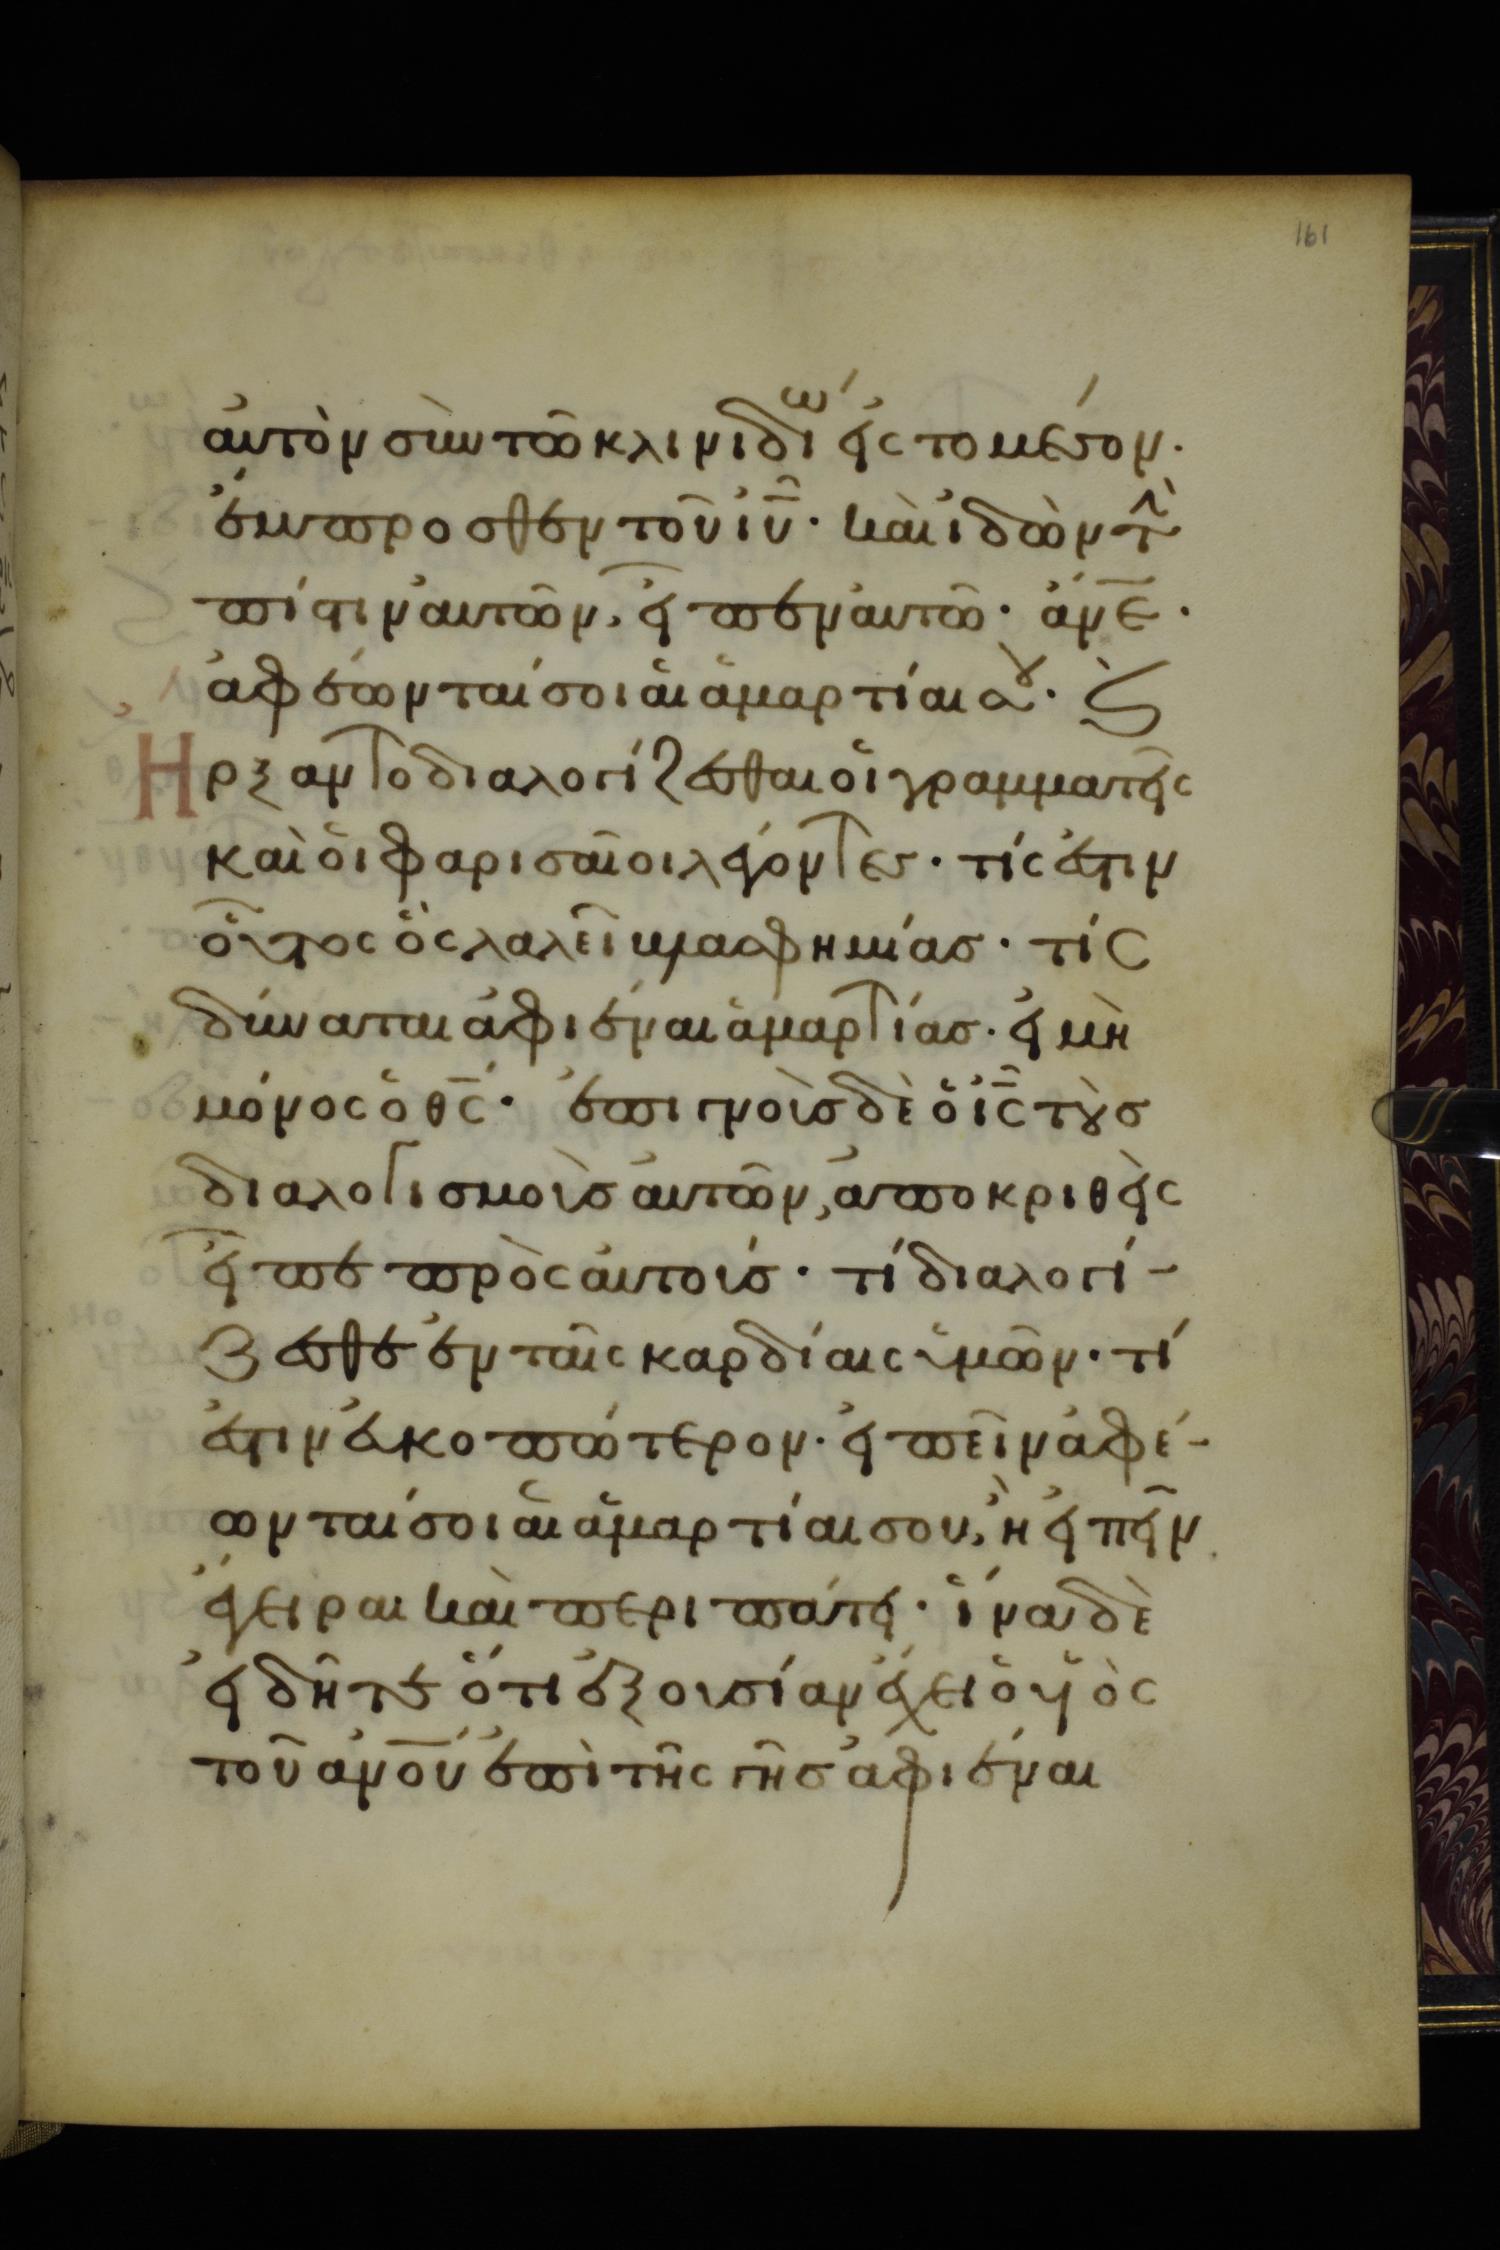 161
αὐτὸν σὺν τῶ κλινιδίω εἰς το μέσον.
ἔμπροσθεν τοῦ ἰῦ· καὶ ἰδὼν τὴν
πίστιν αὐτῶν, εἶπεν αὐτῶ· ἄν̅ε̅·
ἀφέωνταί σοι αἱ ἁμαρτίαι σου· Καὶ
Ἤρξαντο διαλογίζεσθαι οἱ γραμματεῖς
καὶ οἱ φαρισαῖοι λέγοντες· τίς ἐστιν
οὗτος ὃς λαλεῖ βλασφημίας· τίς
δύναται ἀφιέναι ἁμαρτίας· εἰ μὴ
μόνος ὁ θ̅ς̅· ἐπιγνοὺς δὲ ὁ ἰ̅ς̅ τοὺς
διαλογισμοὺς αὐτῶν, ἀποκριθεὶς
εἶπε πρὸς αὐτούς· τί διαλογί-
ζεσθε ἐν ταῖς καρδίαις ὑμῶν· τί
ἐστιν εὐκοπώτερον· εἰπεῖν ἀφέ-
ωνταί σοι αἱ ἁμαρτίαι σου, ἢ εἰπεῖν
ἔγειραι καὶ περιπάτει· ἵνα δὲ
εἰδῆτε ὅτι ἐξουσίαν ἔχει ὁ υἱὸς
τοῦ ἀν̅ο̅υ̅ ἐπὶ τῆς γῆς ἀφιέναι